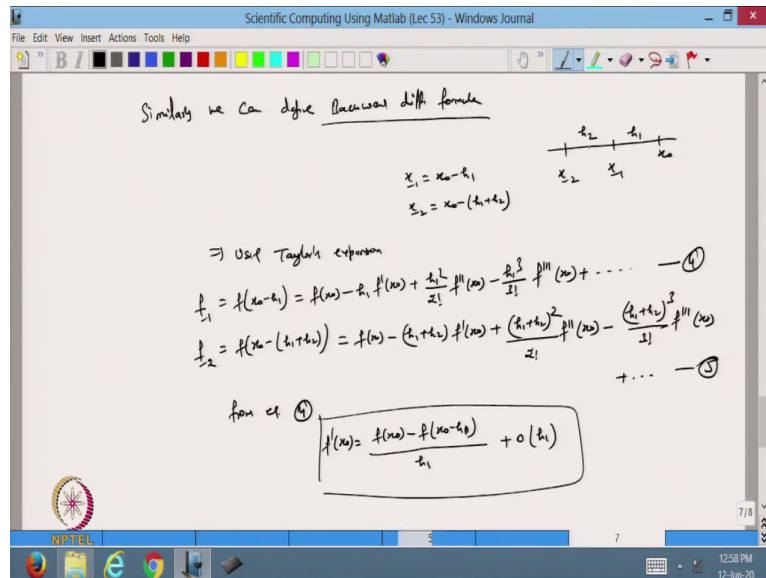 Scientific Computing Using Matlab (Lec 53) - Windows Journal
File Edit View Insert Actions Tools Help
Similarly we can define Backward diff formula
h₂ h₁
x₋₂ x₋₁ x₀
x₋₁ = x₀ - h₁
x₋₂ = x₀ - (h₁+h₂)
⇒ Use Taylor's expansion
f₋₁ = f(x₀-h₁) = f(x₀) - h₁ f'(x₀) + h₁²/2! f''(x₀) - h₁³/3! f'''(x₀) + ---- — ④
f₋₂ = f(x₀-(h₁+h₂)) = f(x₀) - (h₁+h₂) f'(x₀) + (h₁+h₂)²/2! f''(x₀) - (h₁+h₂)³/3! f'''(x₀)
+ ... — ⑤
from eq ④
f'(x₀) = (f(x₀) - f(x₀-h₁))/h₁ + O(h₁)
7/8
NPTEL
5 7
12:58 PM
12-Jun-20